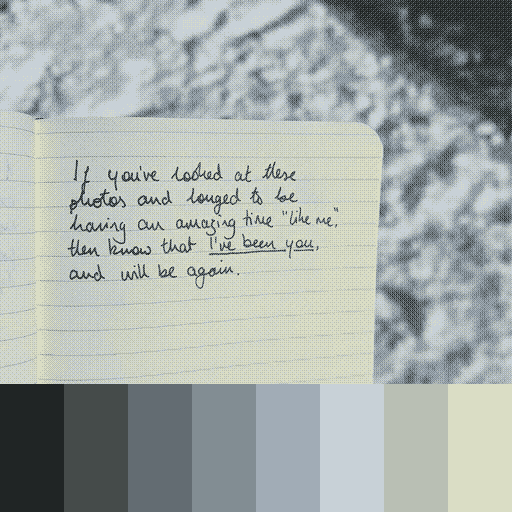 If you've looked at these
photos and longed to be
having an amazing time "like me",
then know that I've been you,
and will be again.